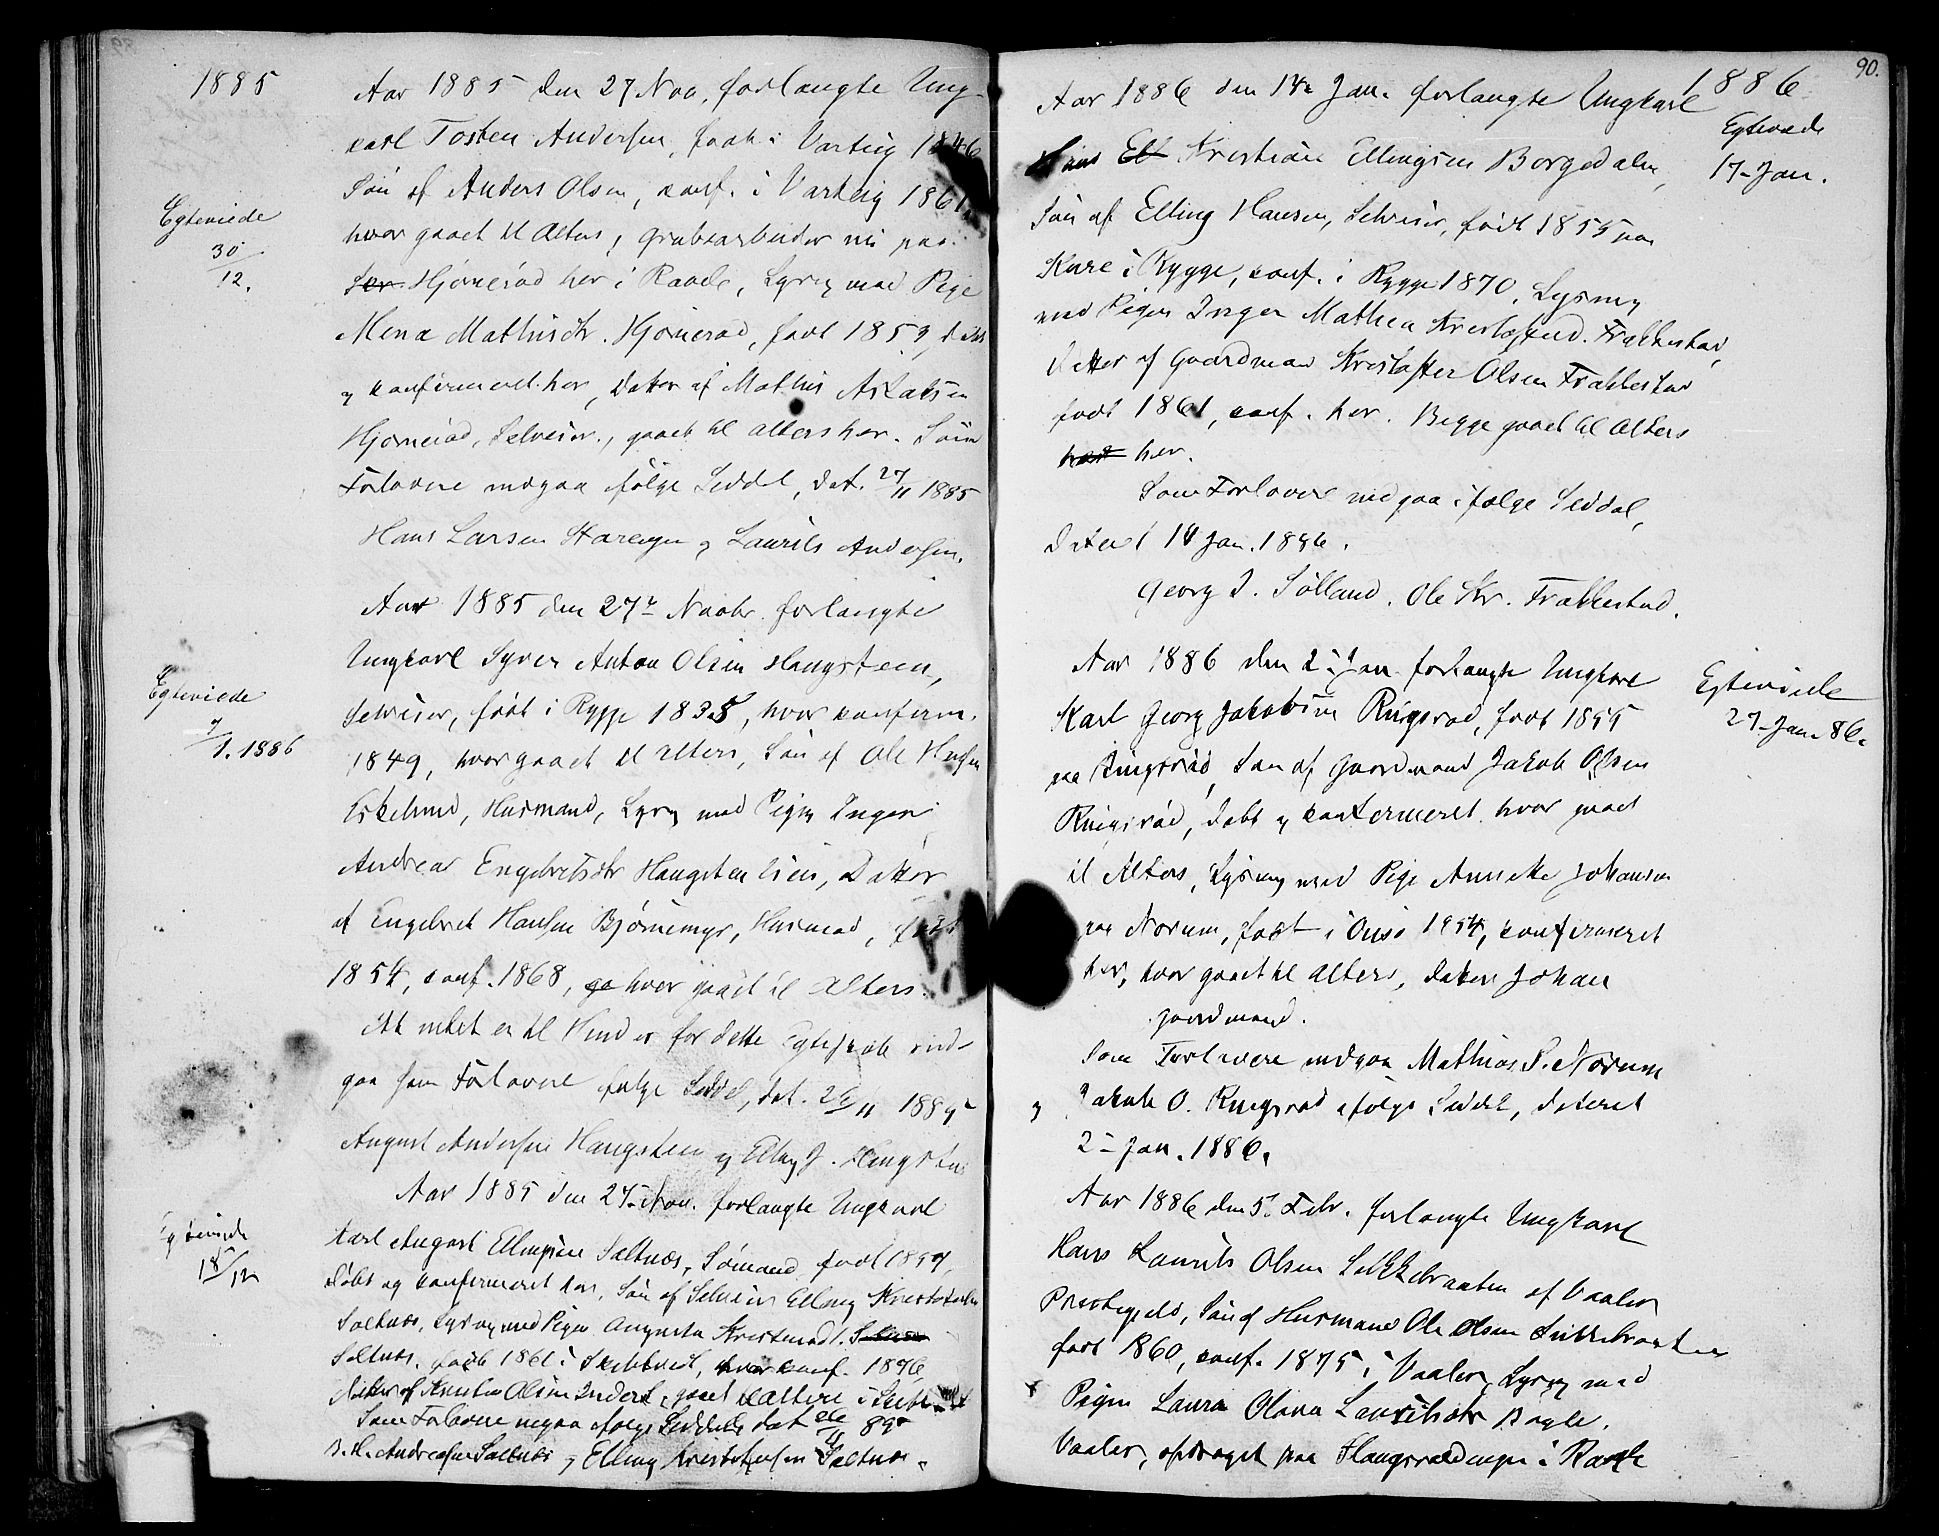 1885
Aar 1885 den 27 Nov. forlangte Ung-
karl Tosten Andersen, født i Varteig 1846
Søn af Anders Olsen, conf. i Varteig 1861,
Egteviede
hvor gaaet til Alters, Grubearbeider nu paa
30
12.
Hjørnerød her i Raade, Lysng med Pige
Mena Mathisdtr. Hjørnerød, født 1853, døbt
og konfirmeret her, Datter af Mathis Aslaksen
Hjørnerød, Selveier, gaaet til alters her. Som
Forlovere indgaa følge Seddel, dat. 27/11 1885
Hans Larsen og Laurits Andersen.
Aar 1885 den 27de Novbr. forlangte
Ungkarl Syver Anton Olsen Haugsteen,
Egteviede
Selveier, født i Rygge 1835, hvor konfirm.
7/1. 1886
1849, hvor gaaet til alters, Søn af Ole Hansen
Eskelund, Husmand, Lysng med Pigen Inger
Andrea Engebretsdtr Haugsten, Datter
af Engebret Hansen Bjørnemyr, Husmand, født
1854, conf. 1868, hvor gaaet til Alters.
At intet er til Hinder for dette Egteskab ind-
gaa som Forlovere følge Seddel, dat. 26/11 1885
August Andersen Haugsteen og Elling J. Haugsten
Aar 1885 den 27 Nov. forlangte Ungkarl
Egteviede
18/12
Karl August Ellingsen Saltnæs, Sømand, født
døbt og konfirmeret her, Søn af Selveier Elling Kristofersen
Saltnæs, Lysng med Pigen Augusta
Saltnæs, født 1861 i Skibtvedt, hvor conf. 1876,
Datter af Kristian Olsen, gaaet til altere i
Som Forlovere indgaa følge Seddel dat 85
B. H. Andreasen Saltnæs og Elling Kristofersen Saltnæs.
90.
1886
Aar 1886 den 14de Jan. forlangte Ungkarl
Egteviede
17-Jan.
Hans Ell Kristian Ellingsen Borgedalen,
Søn af Elling Hansen, Selveier, født 1855 paa
Kure i Rygge, conf. i Rygge 1870, Lysning
med Pigen Inger Mathea Kristofersd. Frakkestad,
Datter af Gaardmand Kristoffer Olsen Frakkestad
født 1861, conf. her. Begge gaaet til Alters
her.
Som Forlovere indgaa ifølge Seddel,
dateret 14 Jan. 1886.
Georg J. Sølland. Ole Kr. Frakkestad.
Aar 1886 den 2- Jan. forlangte Ungkarl
Egteviede
27-Jan. 86.
Karl Georg Jakobsen Ringsrød, født 1855
paa Ringsrød, Søn af Gaardmand Jakob Olsen
Ringsrød, døbt og konfirmeret, hvor gaaet
til Alters, Lysning med Pige Johansen
paa Norum, født i Onsø 1854, konfirmeret
her, hvor gaaet til alters, datter Johan
gaardmand.
Som Forlovere indgaa Mathias Norum
og Jakob O. Ringsrød ifølge Seddel, dateret
2- Jan. 1886.
Aar 1886 den 5. Febr. forlangte Ungkarl
Hans Laurits Olsen Sikkebraaten af Vaaler
Prestegjeld, Søn af Husmand Ole Olsen Sikkebraaten
født 1860, conf. 1875 i Vaaler, Lysng med
Pigen Laura Olava Lauritsdtr Bøgle,
Vaaler, opdraget paa i Raade